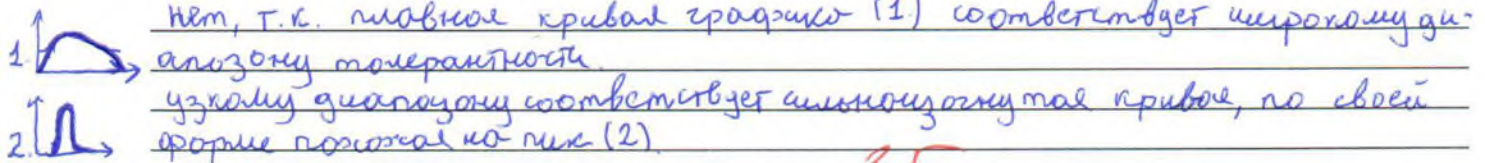 нет, т.к. плавная кривая графика (1.) соответствует широкому ди-
1. апозону толерантности.
узкому диапозону соответствует сильноизогнутая кривая, по своей
2. форме похожая на пик (2)